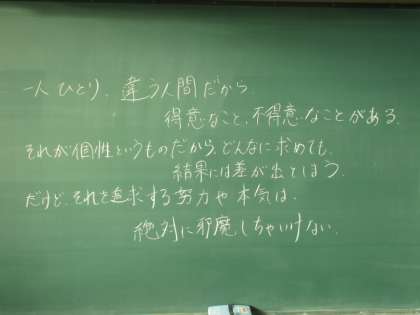 一人ひとり、違う人間だから、
得意なこと、不得意なことがある。
それが個性というものだから、どんなに求めても、
結果には差が出てしまう。
だけど、それを追求する努力や本気は、
絶対に邪魔しちゃいけない。